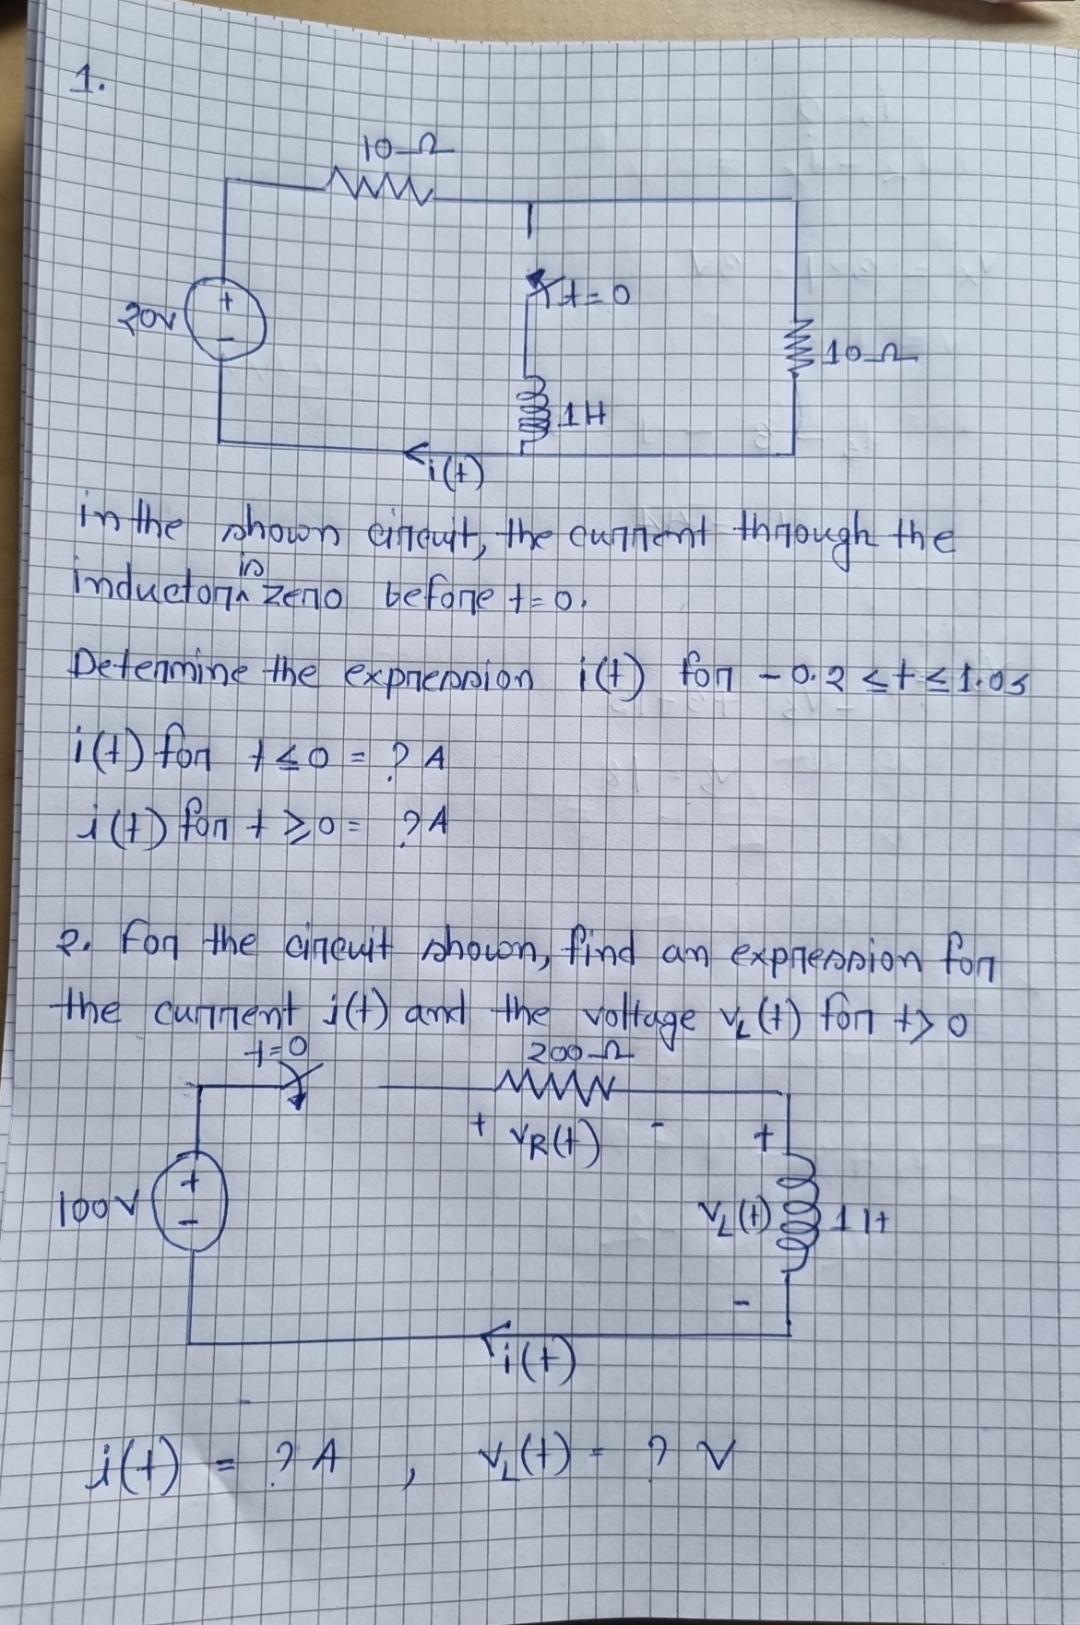 1.
10Ω
20v
t=0
10Ω
1H
i(t)
in the shown circuit, the current through the
inductor is zero before t=0.
Determine the expression i(t) for -0.2 ≤ t ≤ 1.0s
i(t) for t ≤ 0 = ? A
i(t) for t ≥ 0 = ? A
2. For the circuit shown, find an expression for
the current i(t) and the voltage vL(t) for t > 0
t=0
200Ω
+ vR(t) -
+
100v
+
-
vL(t)
1H
-
i(t)
i(t) = ? A , vL(t) = ? V